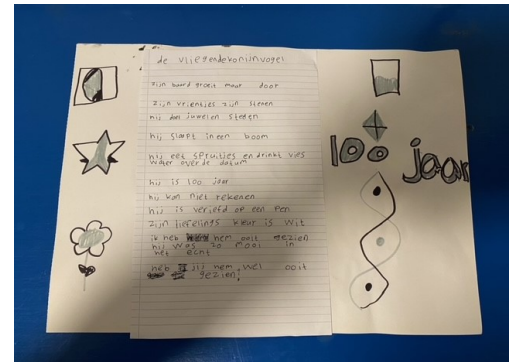 de vliegendekonijnvogel
zijn baard groeit maar door
zijn vrientjes zijn stenen
hij juwelen stelen
hij slaapt in een boom
hij eet spruitjes en drinkt vies
water over de datum
hij is 100 jaar
hij kan niet rekenen
hij is verliefd op een pen
zijn lievelings kleur is wit
ik heb hem ooit gezien
hij was zo mooi in
het echt
heb jij hem wel ooit
gezien?
100 jaar